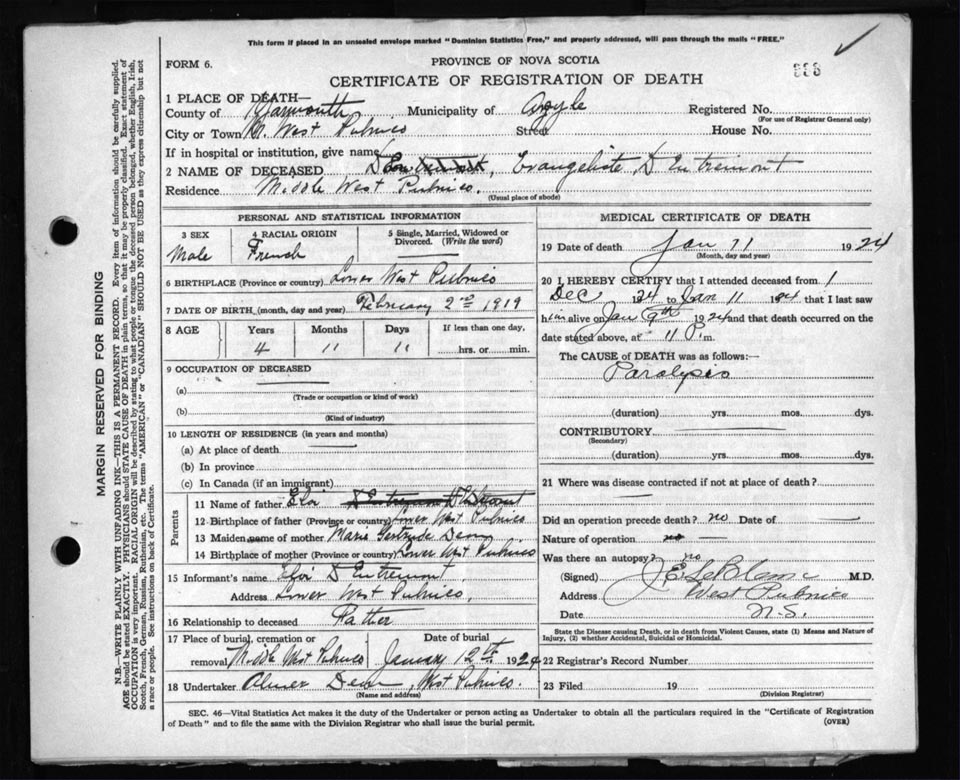 This form if placed in an unsealed envelope marked "Dominion Statistics Free," and properly addressed, will pass through the mails "FREE."
FORM 6.
PROVINCE OF NOVA SCOTIA
CERTIFICATE OF REGISTRATION OF DEATH
1 PLACE OF DEATH—
County of Yarmouth Municipality of Argyle Registered No.
(For use of Registrar General only)
City or Town M. West Pubnico Street House No.
If in hospital or institution, give name
2 NAME OF DECEASED Evangeliste, D Entremont
Residence Middle West Pubnico.
(Usual place of abode)
PERSONAL AND STATISTICAL INFORMATION
3 SEX 4 RACIAL ORIGIN 5 Single, Married, Widowed or Divorced. (Write the word)
Male French
6 BIRTHPLACE (Province or country) Lower West Pubnico
7 DATE OF BIRTH (month, day and year) February 2nd 1919
8 AGE Years Months Days If less than one day,
4 11 11 hrs. or min.
9 OCCUPATION OF DECEASED
(a)
(Trade or occupation or kind of work)
(b)
(Kind of industry)
10 LENGTH OF RESIDENCE (in years and months)
(a) At place of death
(b) In province
(c) In Canada (if an immigrant)
Parents
11 Name of father Eloi D'Entremont
12 Birthplace of father (Province or country) Lower West Pubnico
13 Maiden name of mother Marie Gertrude Deon
14 Birthplace of mother (Province or country) Lower West Pubnico
15 Informant's name Eloi D Entremont
Address Lower West Pubnico
16 Relationship to deceased Father
17 Place of burial, cremation or removal Date of burial
Middle West Pubnico January 12th 1924
18 Undertaker Deon, West Pubnico.
(Name and address)
MEDICAL CERTIFICATE OF DEATH
19 Date of death Jan 11 1924
(Month, day and year)
20 I HEREBY CERTIFY that I attended deceased from 1
Dec to Jan 11 that I last saw
him alive on Jan 9th 1924 and that death occurred on the
date stated above, at 11 P.m.
The CAUSE of DEATH was as follows:—
Paralysis
(duration) yrs. mos. dys.
CONTRIBUTORY
(Secondary)
(duration) yrs. mos. dys.
21 Where was disease contracted if not at place of death?
Did an operation precede death? no Date of
Nature of operation no
Was there an autopsy? no
(Signed) J E LeBlanc M.D.
Address West Pubnico
Date N.S.
State the Disease causing Death, or in death from Violent Causes, state (1) Means and Nature of
Injury, (2) whether Accidental, Suicidal or Homicidal.
22 Registrar's Record Number
23 Filed 19
(Division Registrar)
SEC. 46—Vital Statistics Act makes it the duty of the Undertaker or person acting as Undertaker to obtain all the particulars required in the "Certificate of Registration
of Death" and to file the same with the Division Registrar who shall issue the burial permit.
(OVER)
MARGIN RESERVED FOR BINDING
N.B.—WRITE PLAINLY WITH UNFADING INK—THIS IS A PERMANENT RECORD. Every item of information should be carefully supplied.
AGE should be stated EXACTLY. PHYSICIANS should STATE CAUSE OF DEATH in plain terms, so that it may be properly classified. Exact statement of
OCCUPATION is very important. RACIAL ORIGIN will be described by stating to what people or tongue the deceased person belonged, whether English, Irish,
Scotch, French, German, Russian, Ruthenian, etc. The terms "AMERICAN" or "CANADIAN" SHOULD NOT BE USED as they express citizenship but not
a race or people. See instructions on back of Certificate.